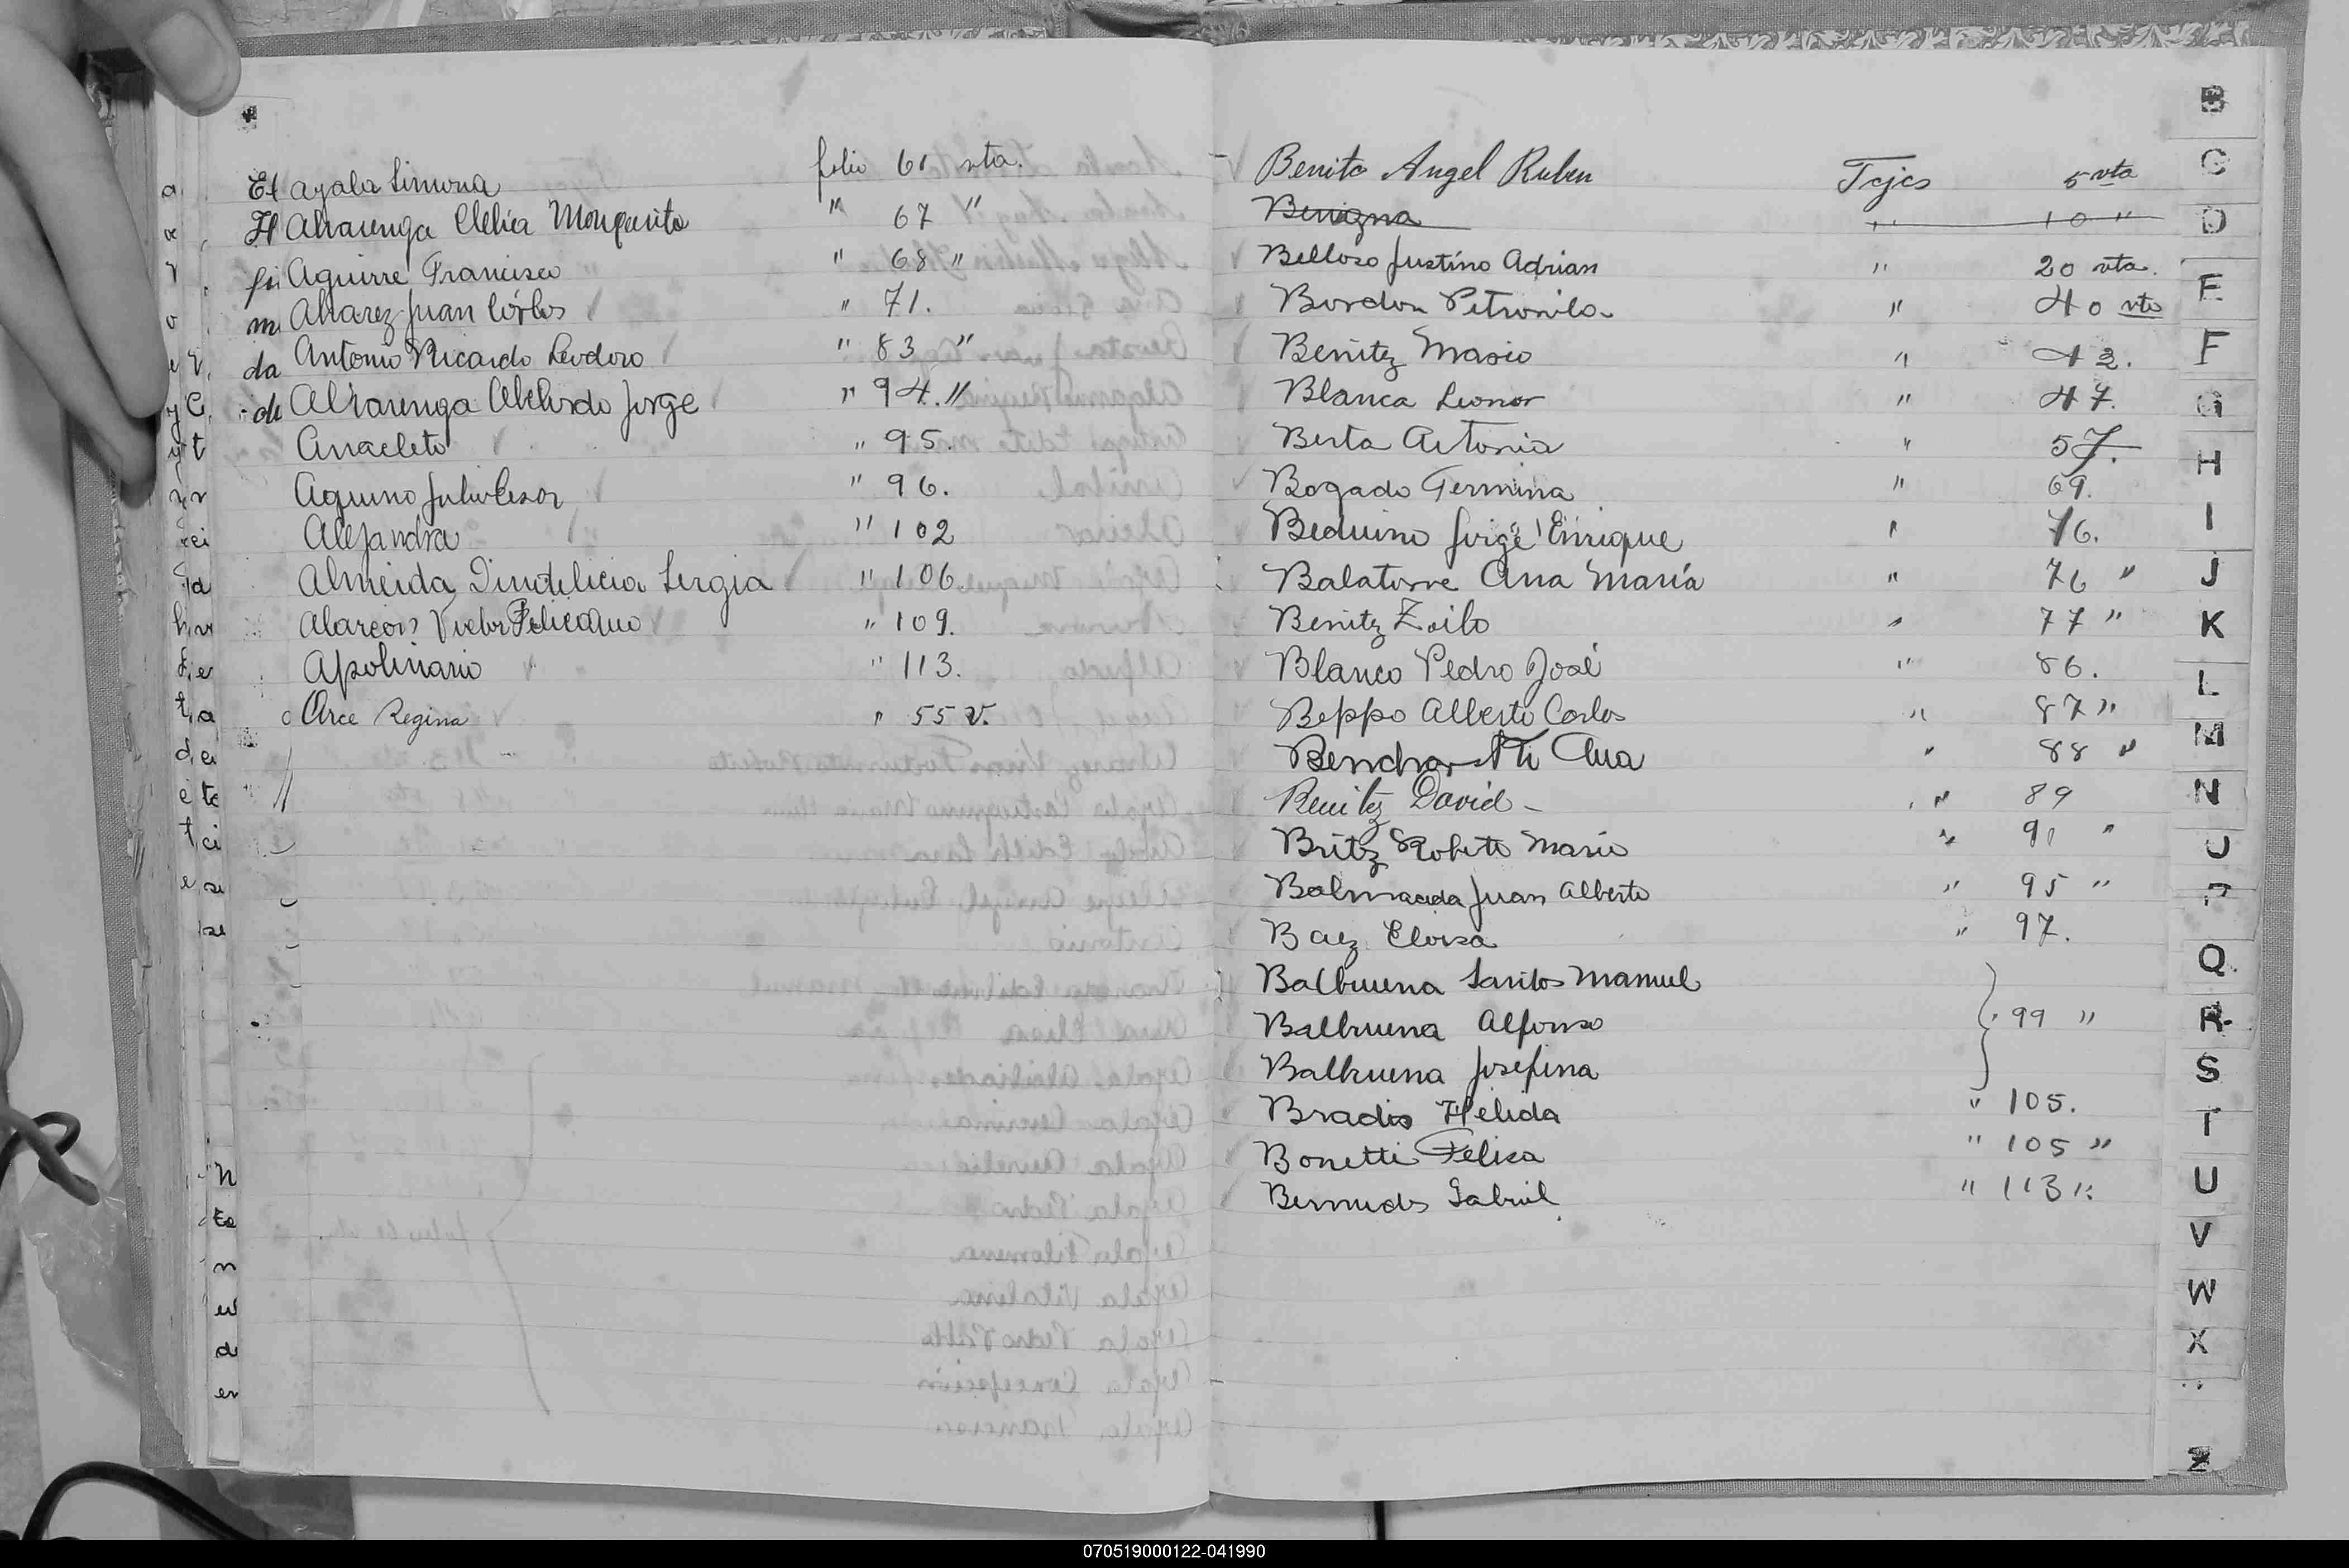 Ayala Simona folio 61 vta.
Alvarenga Clelia Monquito " 67 "
Aguirre Francisco " 68 "
Alvarez Juan Cárlos " 71.
Antonio Ricardo Leodoro " 83 "
Alvarenga Abelardo Jorge " 94. "
Anacleto " 95.
Aquino Julio Cesar " 96.
Alejandra " 102
Almeida Dindelicia Sergia " 106.
Alarcon Victor Feliciano " 109.
Apolinario " 113.
Arce Regina " 55 v.
B
C
D
E
F
G
H
I
J
K
L
M
N
O
P
Q
R
S
T
U
V
W
X
Z
Benito Angel Ruben Fojas 5 vta
Benigna " 10 "
Belloso Justino Adrian " 20 vta.
Bordon Petronilo " 40 vto
Benitez Mario " 42.
Blanca Leonor " 47.
Berta Antonia " 57.
Bogado Germina " 69.
Beduino Jorge Enrique " 76.
Balatorre Ana María " 76 "
Benitez Zoilo " 77 "
Blanco Pedro José " 86.
Beppo Alberto Carlos " 87 "
Benchar Ana " 88 "
Benitez David - " 89
Britez Roberto Mario " 91 "
Balmaceda Juan Alberto " 95 "
Baez Eloisa " 97.
Balbuena Santos Manuel
Balbuena Alfonso 99 "
Balbuena Josefina
Bradis Helida " 105.
Bonetti Felisa " 105 "
Bermudes Gabriel " 113 "
070519000122-041990